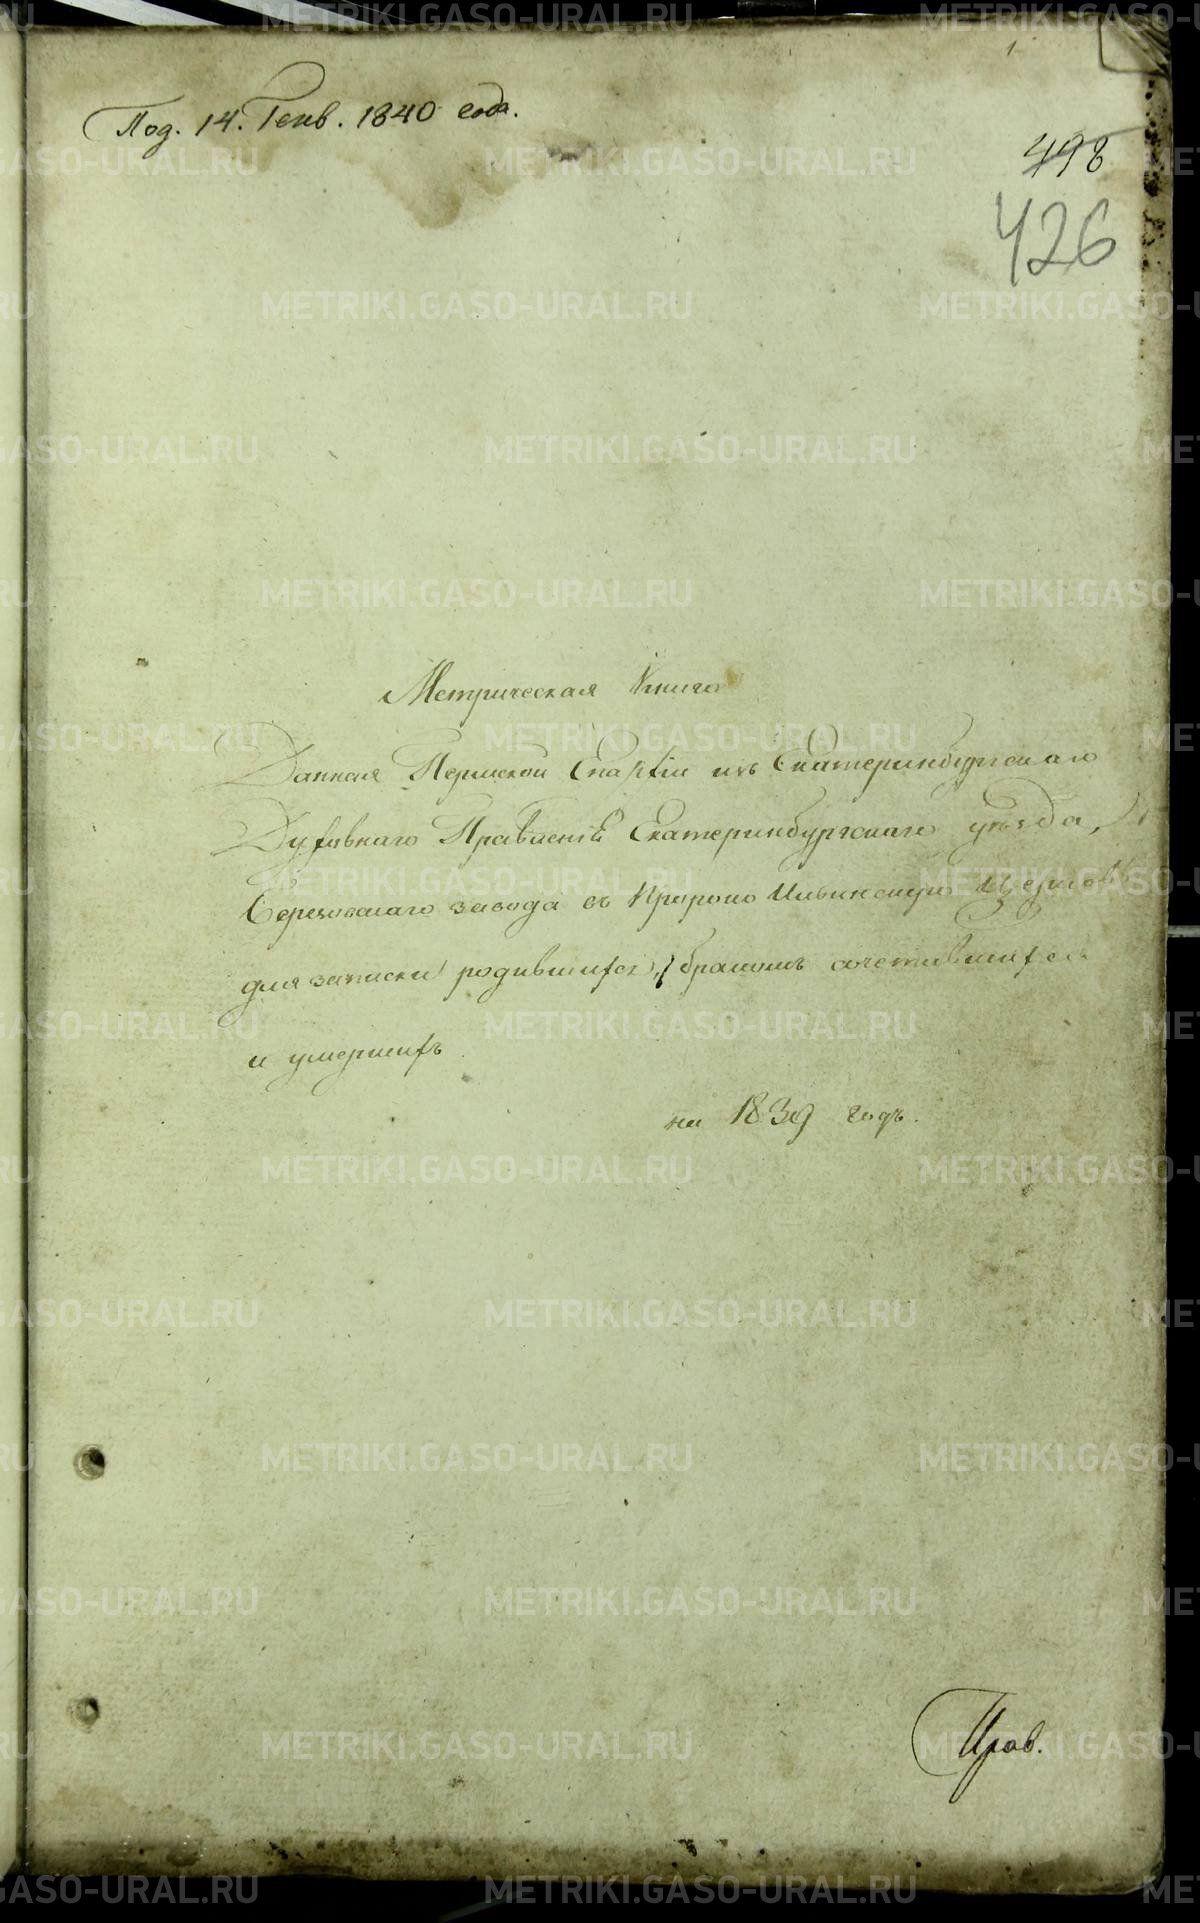 1
Под. 14. Генв. 1840 года.
498
426
Метрическая Книга
Данная Пермской Епархіи изъ Екатеринбургскаго
Духовнаго Правленія Екатеринбургскаго уѣзда,
Березовскаго завода въ Пророко Ильинскую Церковь
для записки родившихся, бракомъ сочетавшихся
и умершихъ
на 1839 годъ.
Пров.
METRIKI.GASO-URAL.RU